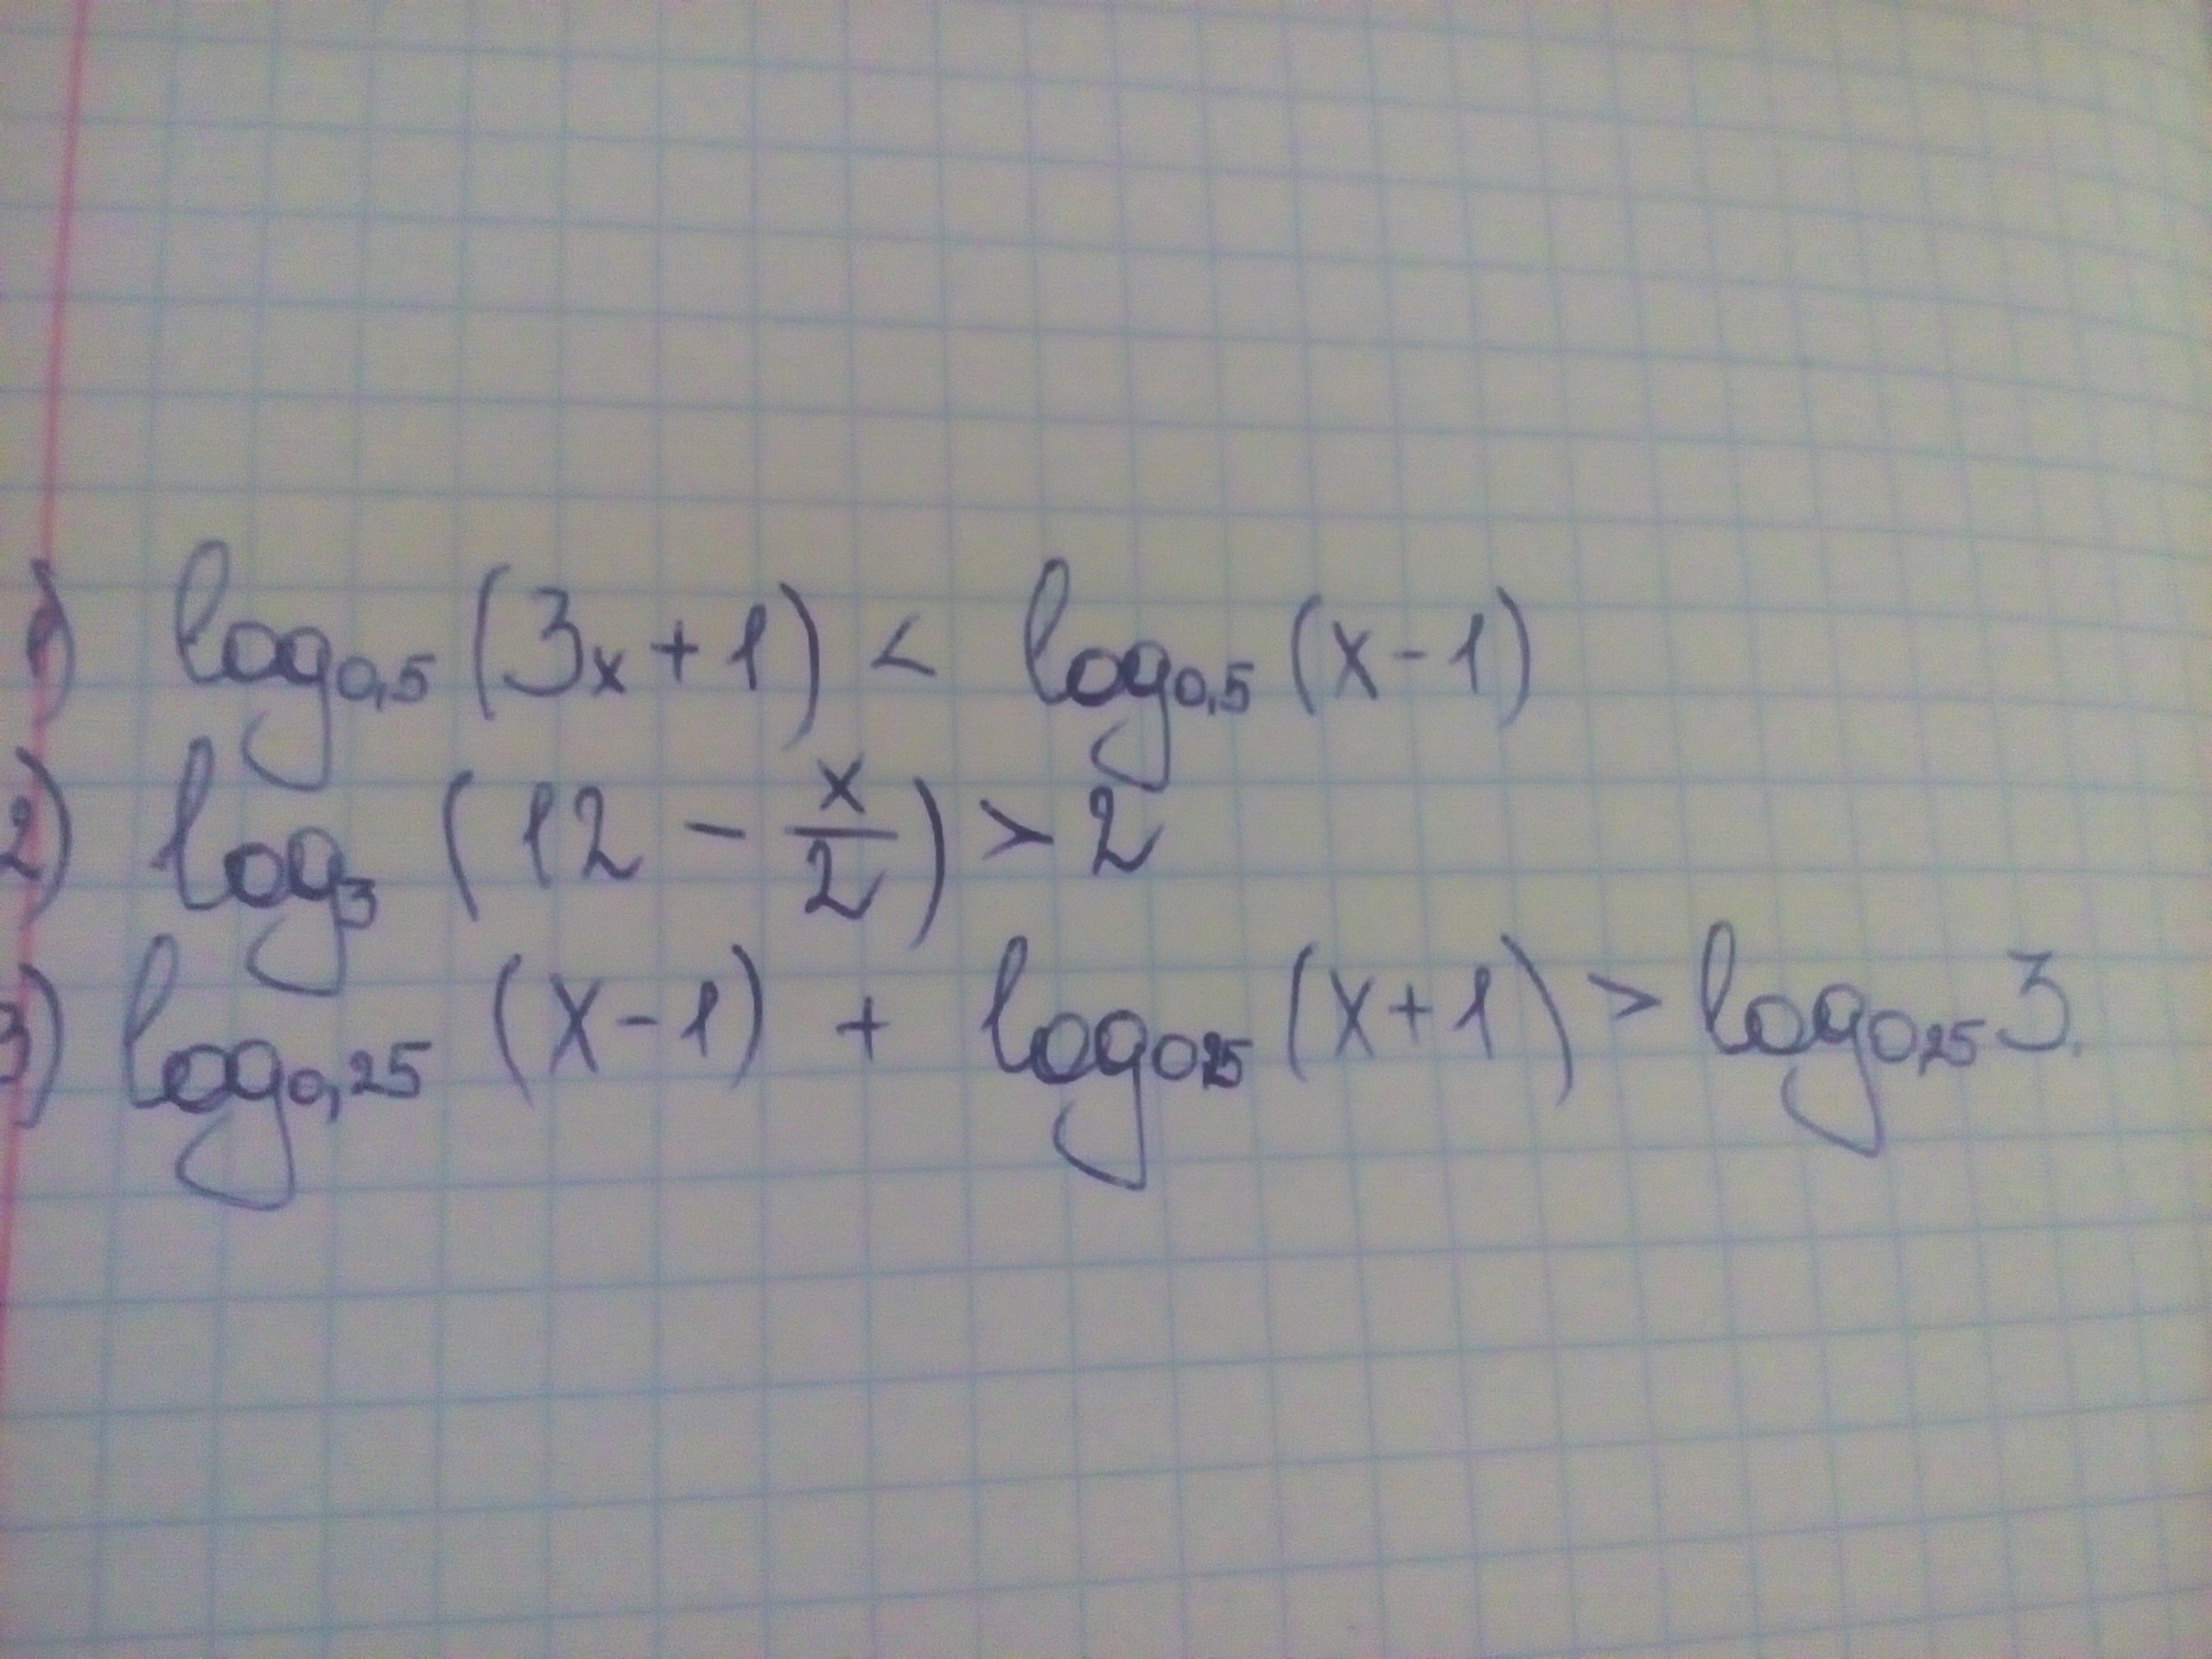 1) log₀,₅ (3x + 1) < log₀,₅ (x - 1)
2) log₃ (12 - x/2) > 2
3) log₀,₂₅ (x - 1) + log₀₂₅ (x + 1) > log₀,₂₅ 3.